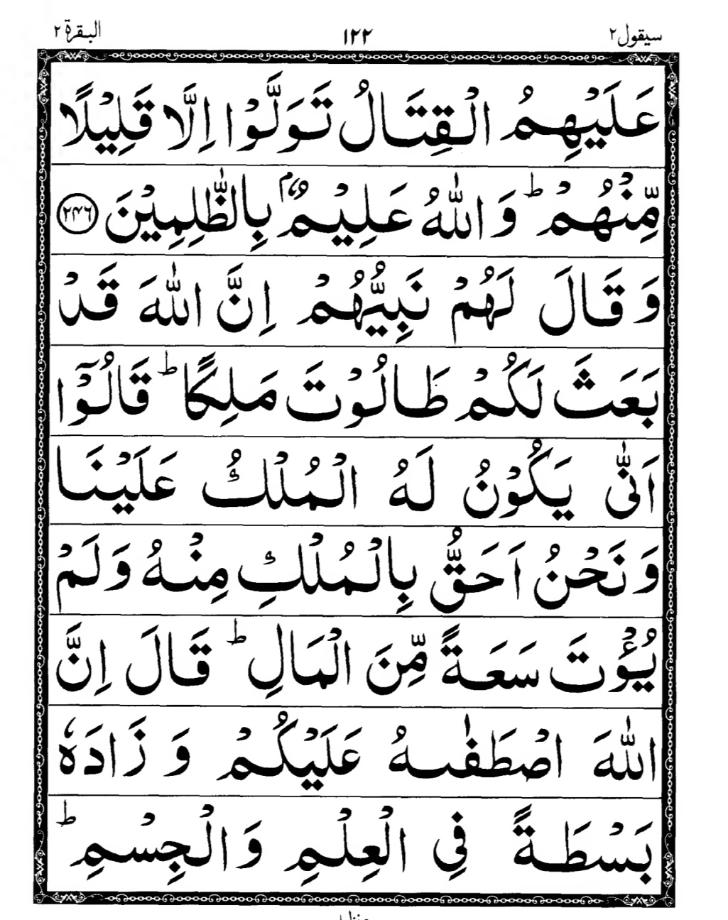 سيقول٢ ١٢٢ البقرة ٢
عَلَيْهِمُ الْقِتَالُ تَوَلَّوْا اِلَّا قَلِيْلًا
مِّنْهُمْ ؕ وَاللّٰهُ عَلِيْمٌۢ بِالظّٰلِمِيْنَ ﴿۲۴۶﴾
وَقَالَ لَهُمْ نَبِيُّهُمْ اِنَّ اللّٰهَ قَدْ
بَعَثَ لَكُمْ طَالُوْتَ مَلِكًا ؕ قَالُوْۤا
اَنّٰى يَكُوْنُ لَهُ الْمُلْكُ عَلَيْنَا
وَنَحْنُ اَحَقُّ بِالْمُلْكِ مِنْهُ وَلَمْ
يُؤْتَ سَعَةً مِّنَ الْمَالِ ؕ قَالَ اِنَّ
اللّٰهَ اصْطَفٰىهُ عَلَيْكُمْ وَ زَادَهٗ
بَسْطَةً فِي الْعِلْمِ وَالْجِسْمِ ؕ